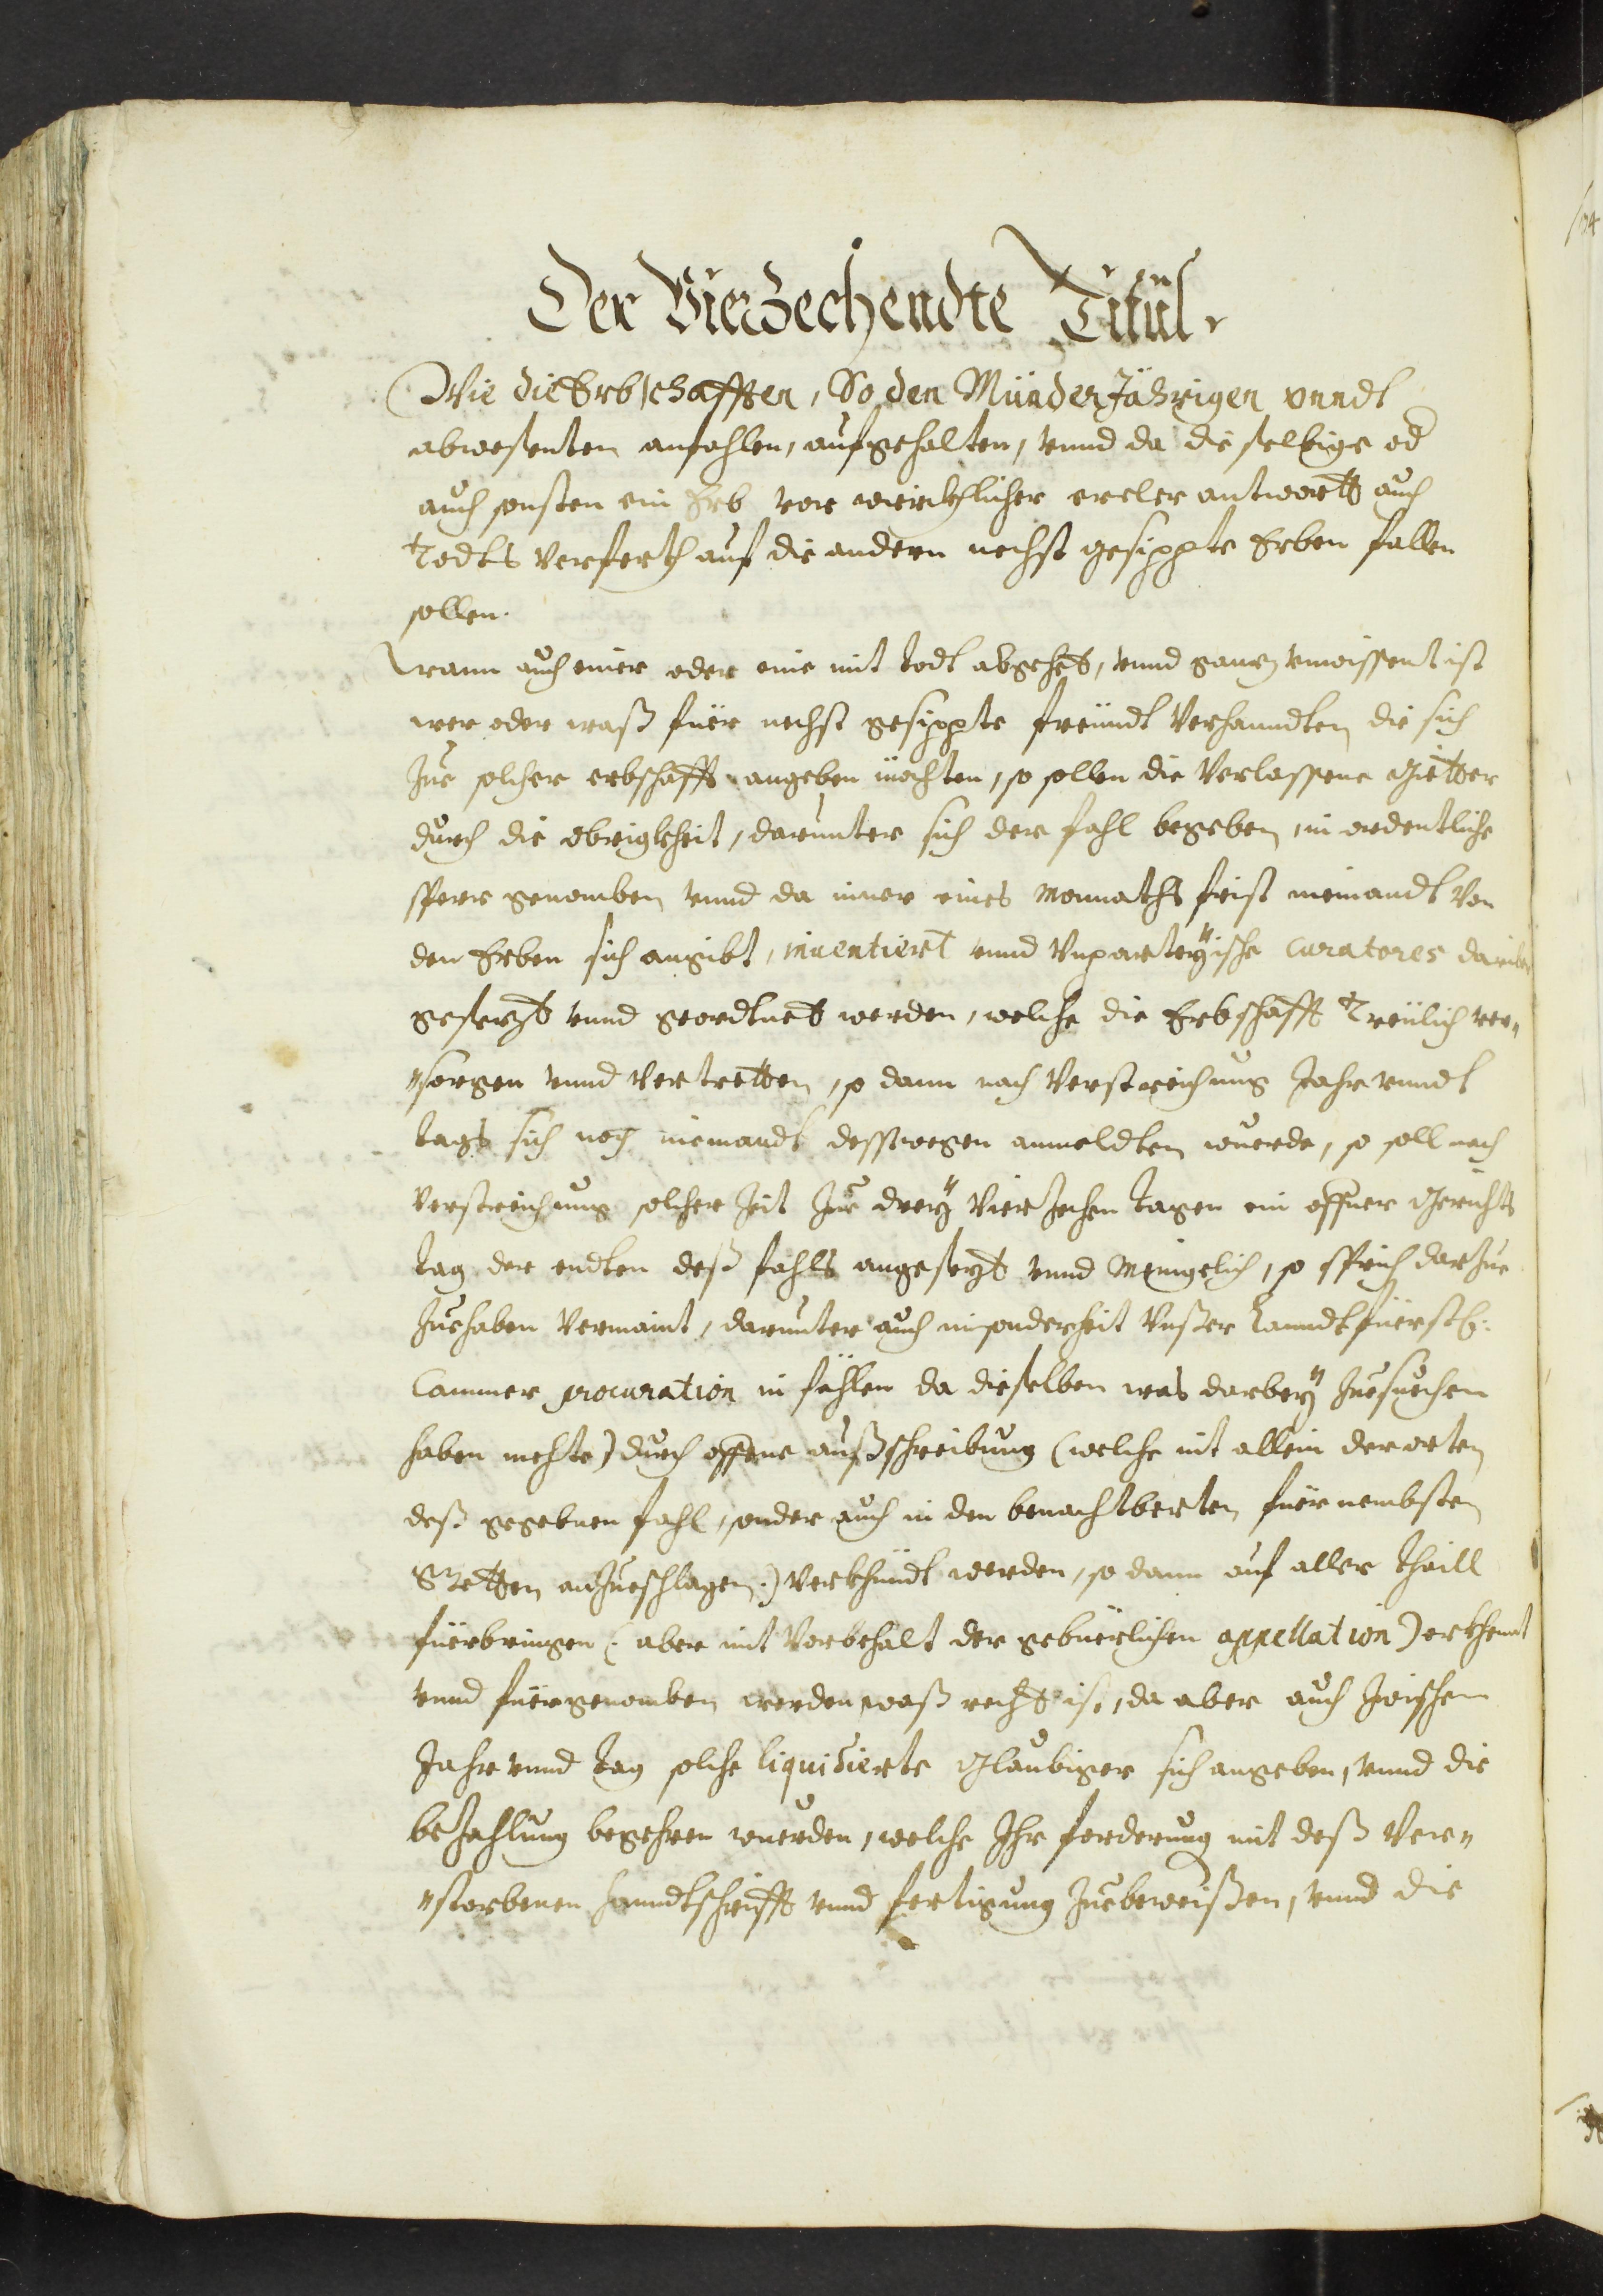 Der VierZechendte Titul.
Wie die Erbschafften, So den MünderJährigen vnndt
abwesenten anfahlen, aufgehalten, vnnd da die selbige od
auch sonsten ein Erb vor wirckhlicher antwortt auch
Todts verferth auf die andern nechst gesippte Erben fallen
sollen.
Wann auch einer oder eine mit todt abgehet, vnnd gantz vnwissent ist
wer oder waß fuër nechst gesippte freündt verhanndten die sich
Zue solcher erbschafft angeben möchten, so sollen die verlassene Gietter
durch die obrigkheit, darunter sich der fahl begeben, in ordentliche
Spörr genomben vnnd da inner eines Monnaths frist niemandt von
den Erben sich angibt, inuentiert vnnd vnparteÿische Curatores dariber
gesetzt vnnd geordtnet werden, welche die Erbschafft Treülich ver„
„sorgen vnnd vertretten, so dann nach verstreichung Jahr vnndt
tags sich noch niemandt desswegen anmeldten wuerde, so soll nach
verstreichung solcher Zeit Zue dreÿ vierZechen tagen ein offner Gerichts
tag der endten deß fahls angesetzt vnnd Menigelich, so Spruch darZue
Zuehaben vermaint, darunter auch in sonderheit vnßer Lanndtfüerstl:
Cammer procuration in fählen da dieselben was darbeÿ Zuesuechen
haben mechte) durch offene außschreibung (welche nit allein der orten
deß gegebnen fahl, sonder auch in den benachtberten fuërnembsten
Stetten anZueschlagen.) verkhündt werden, so dann auf aller thaill
fuërbringen (: aber mit vorbehalt der gebuerlichen appellation) erkhennt
vnnd fuërgenomben werden, waß recht ist, da aber auch Zwischen
Jahr vnnd tag solche liquidierte Glaubiger sich angeben, vnnd die
beZahlung begehren wuerden, welche Ihr forderung mit deß ver„
„storbenen Hanndtschrifft vnnd fertigung Zuebeweißen, vnnd die